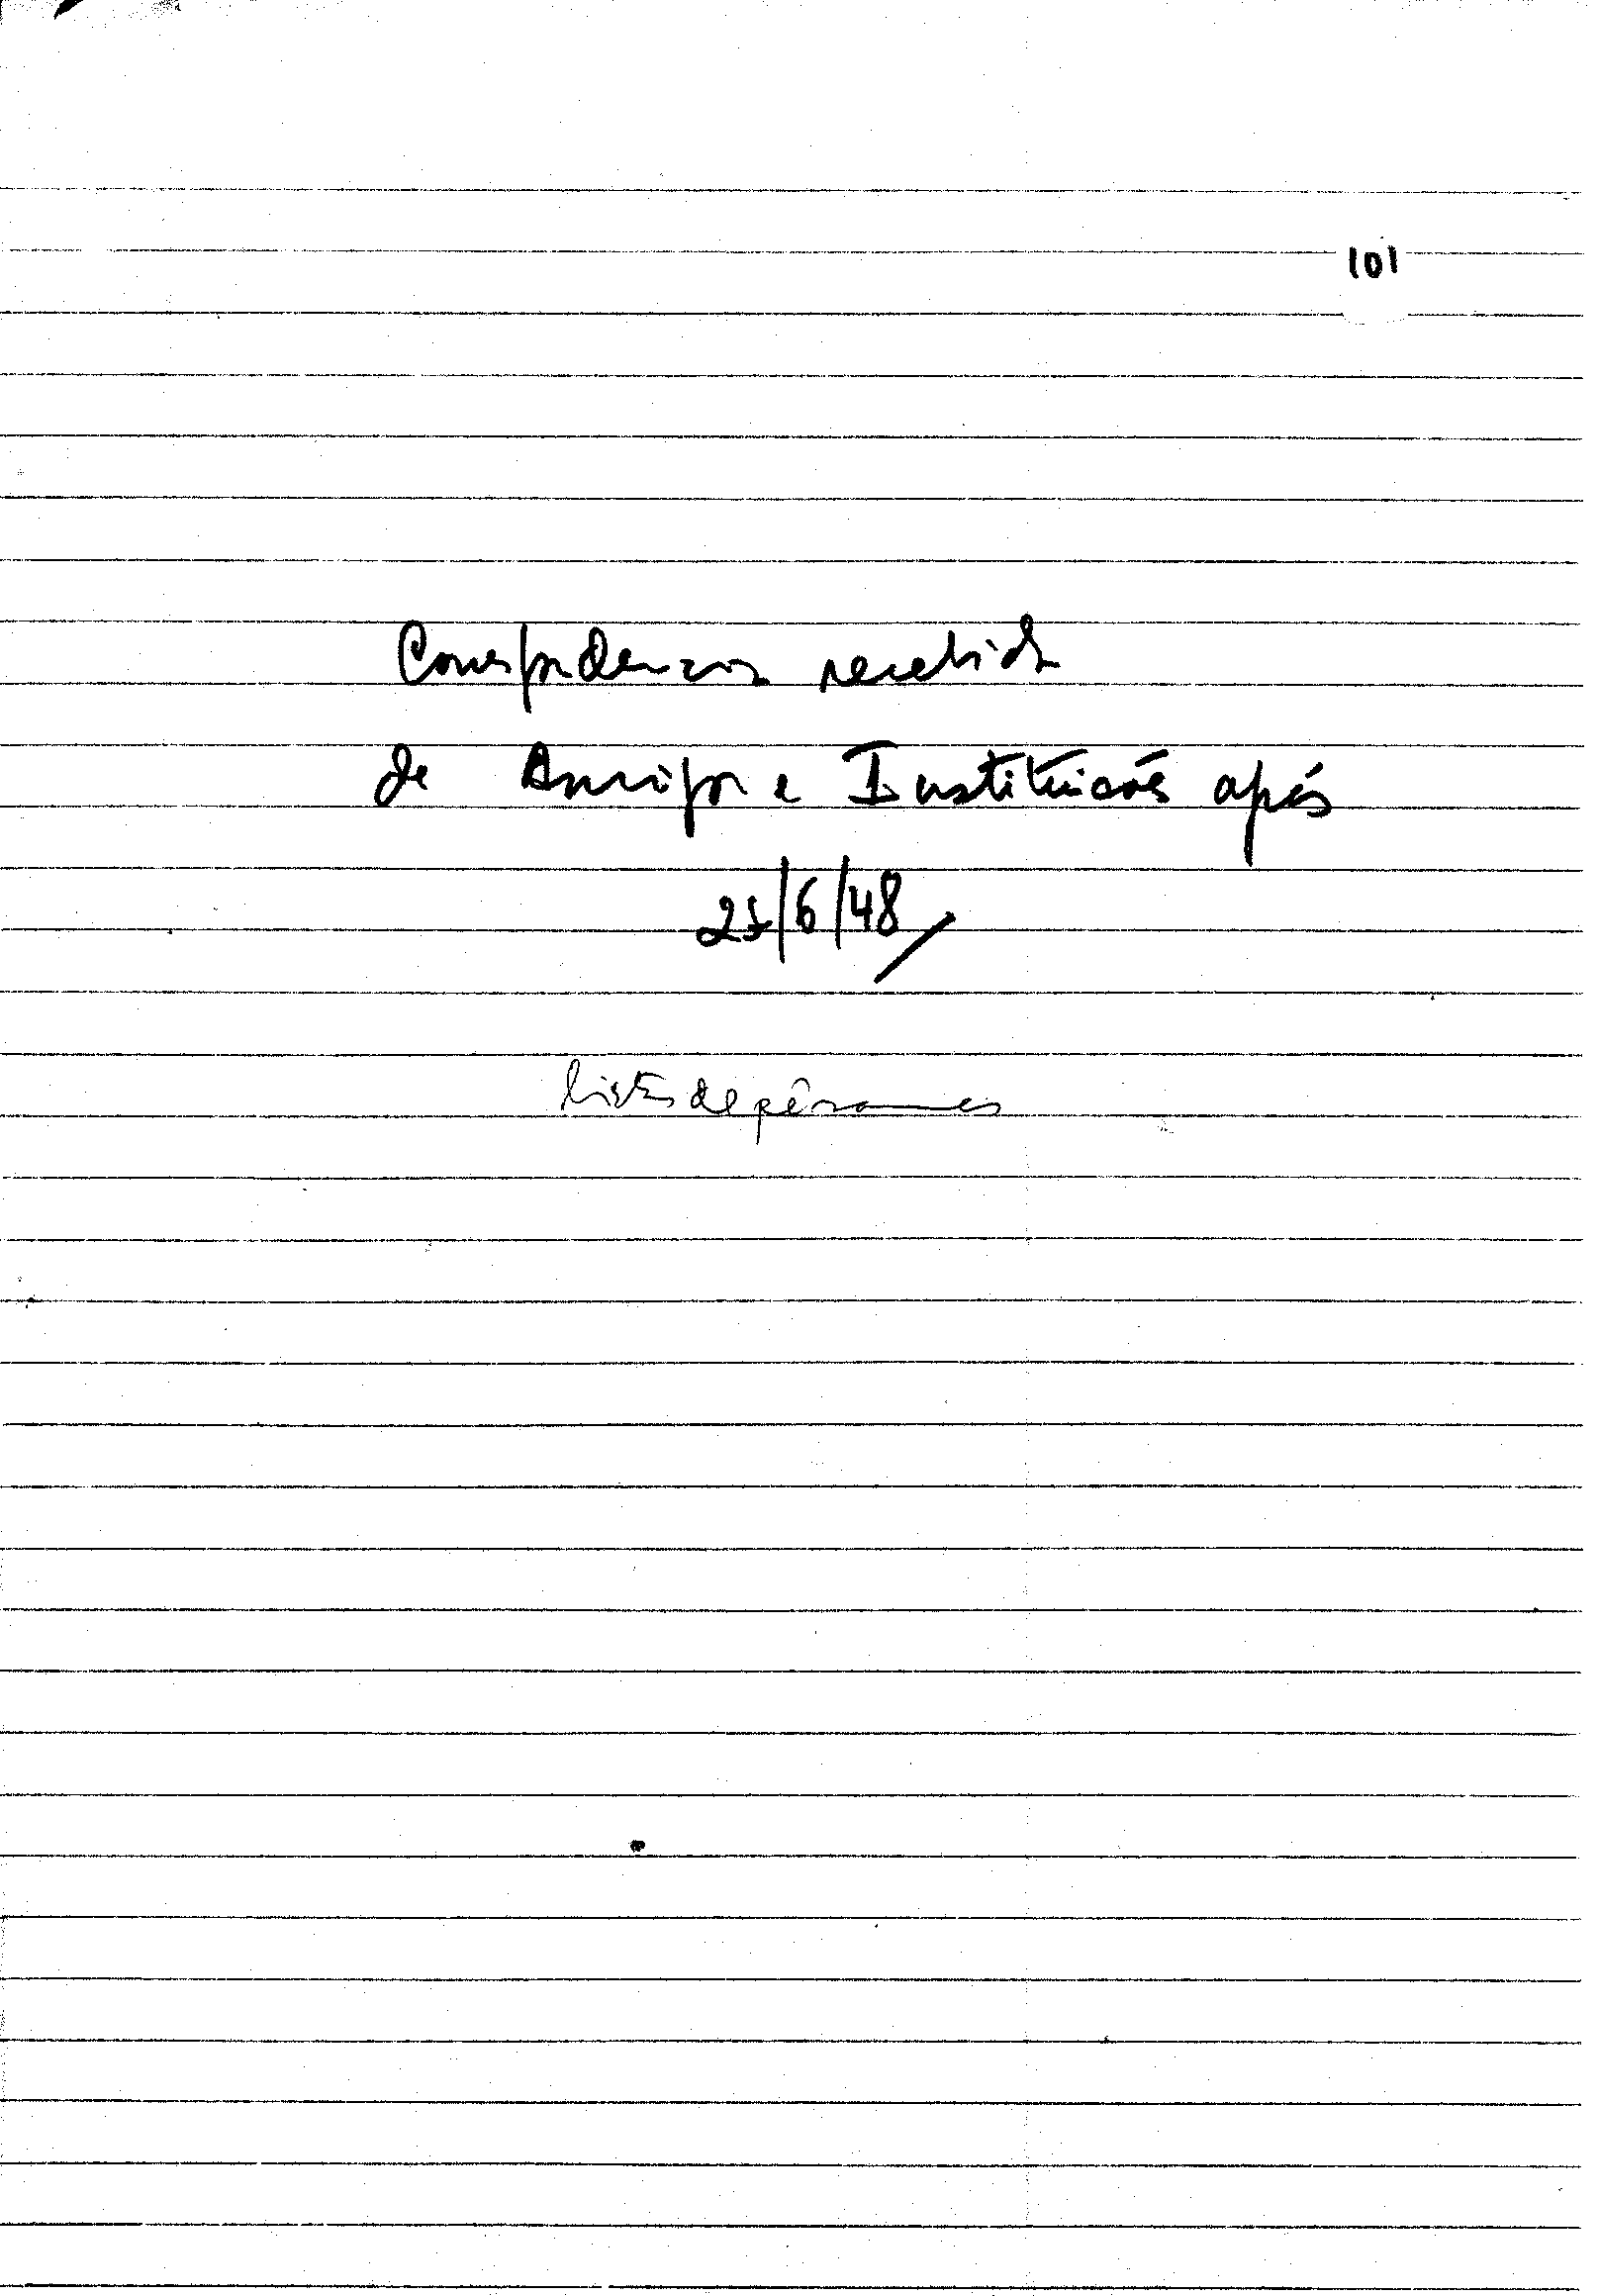 101
Correspondencia recebida
de Amigos e Instituicões após
25/6/48
lista de pêsames